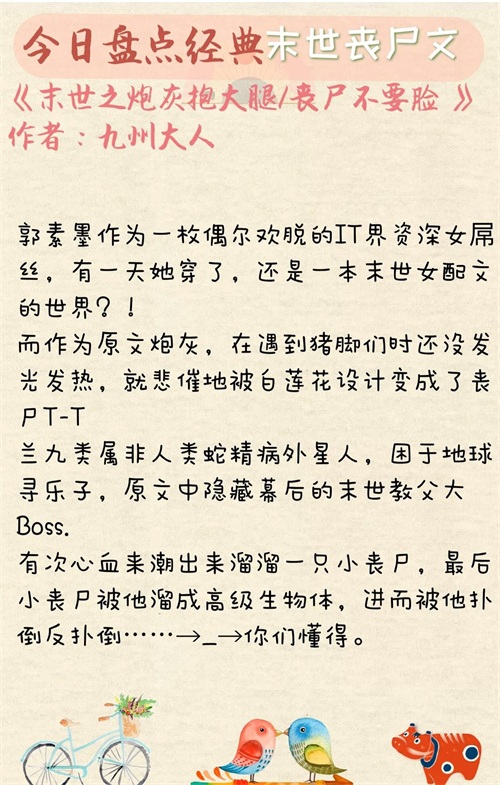 今日盘点经典末世丧尸文
《末世之炮灰抱大腿/丧尸不要脸 》
作者：九州大人
郭素墨作为一枚偶尔欢脱的IT界资深女屌
丝，有一天她穿了，还是一本末世女配文
的世界？！
而作为原文炮灰，在遇到猪脚们时还没发
光发热，就悲催地被白莲花设计变成了丧
尸T-T
兰九类属非人类蛇精病外星人，困于地球
寻乐子，原文中隐藏幕后的末世教父大
Boss.
有次心血来潮出来溜溜一只小丧尸，最后
小丧尸被他溜成高级生物体，进而被他扑
倒反扑倒……→_→你们懂得。